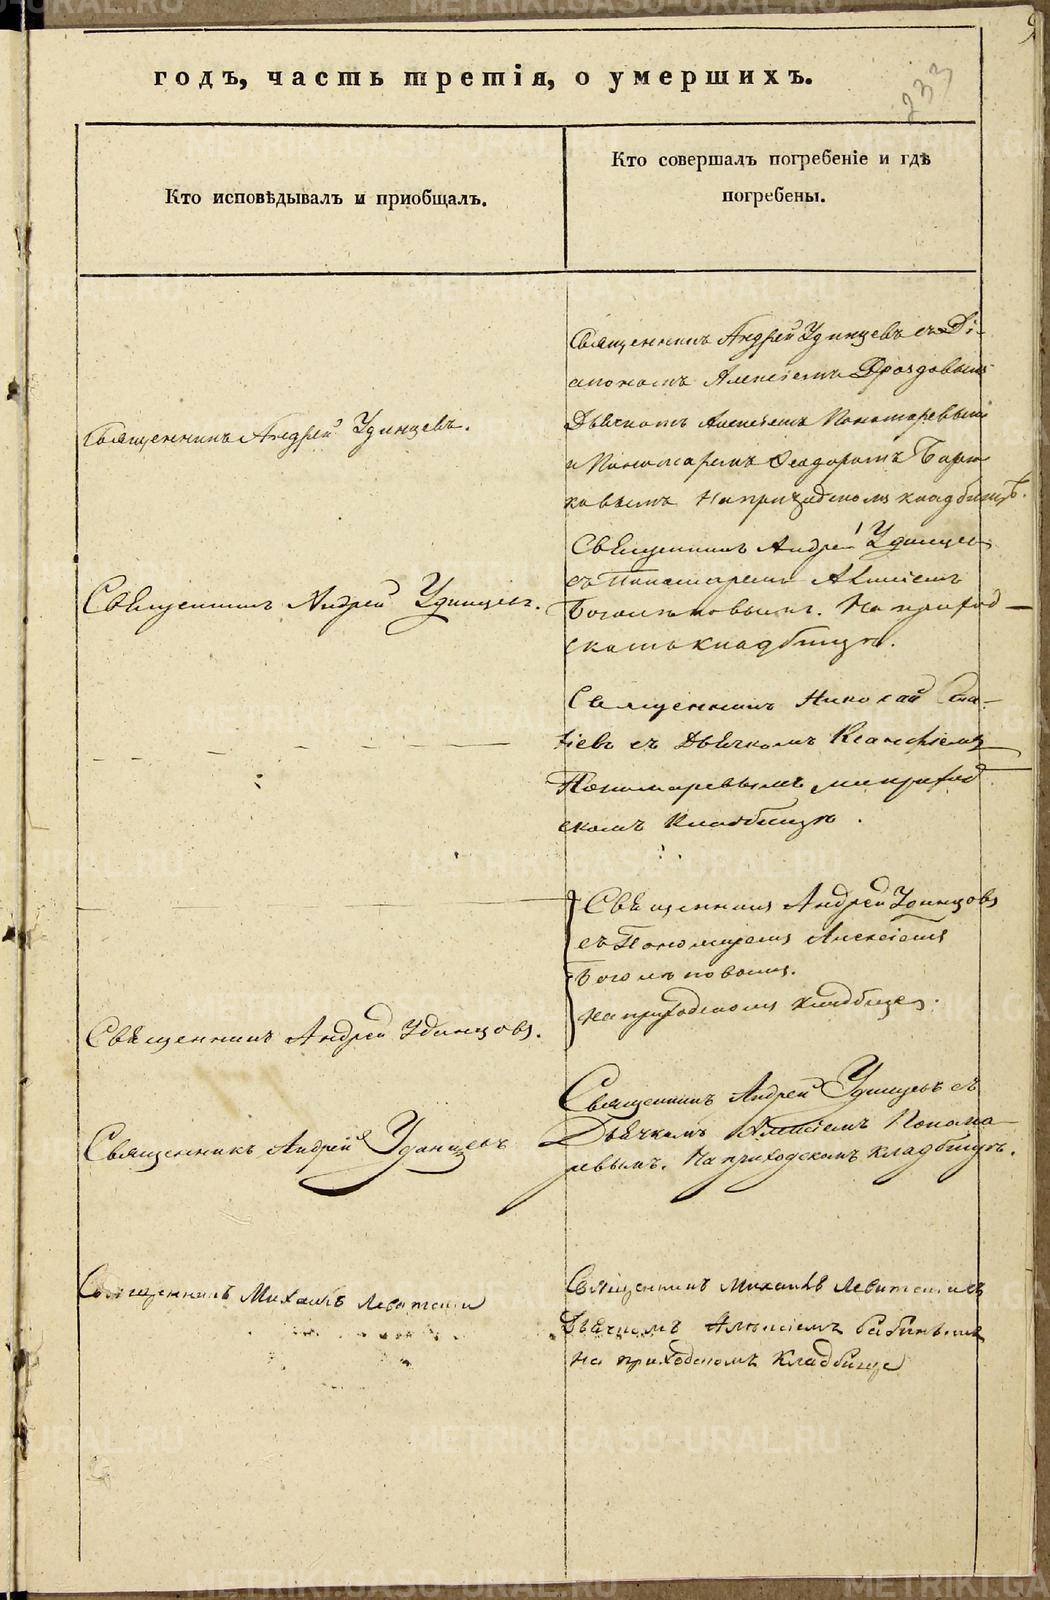 годъ, часть третія, о умершихъ.
233
Кто исповѣдывалъ и приобщалъ.
Кто совершалъ погребеніе и гдѣ
погребены.
Священникъ Андрей Удинцевъ съ Ді-
акономъ Алексіемъ Дроздовымъ
Дьячкомъ Алексіемъ Пономаревымъ
и Пономаремъ Ѳеодоромъ
ковымъ на приходскомъ кладбищѣ.
Священникъ Андрей Удинцевъ.
Священникъ Андрей Удинцевъ
съ Пономаремъ Алексіемъ
Боголѣповымъ. На приход-
скомъ кладбищѣ.
Священникъ Андрей Удинцевъ.
Священникъ Николай
съ Дьячкомъ
Пономаревымъ на приход
скомъ кладбищѣ.
Священникъ Андрей Удинцовъ
съ Пономаремъ Алексіемъ
Боголѣповымъ.
на приходскомъ кладбище.
Священникъ Андрей Удинцовъ.
Священникъ Андрей Удинцевъ съ
Дьячкомъ Алексіемъ Понома-
ревымъ. На приходскомъ кладбищѣ.
Священникъ Андрей Удинцевъ
Священникъ Михаилъ Левитскій
Священникъ Михаилъ Левитскій съ
Дьячкомъ Алексіемъ Бабинымъ
на приходскомъ кладбище
METRIKI.GASO-URAL.RU